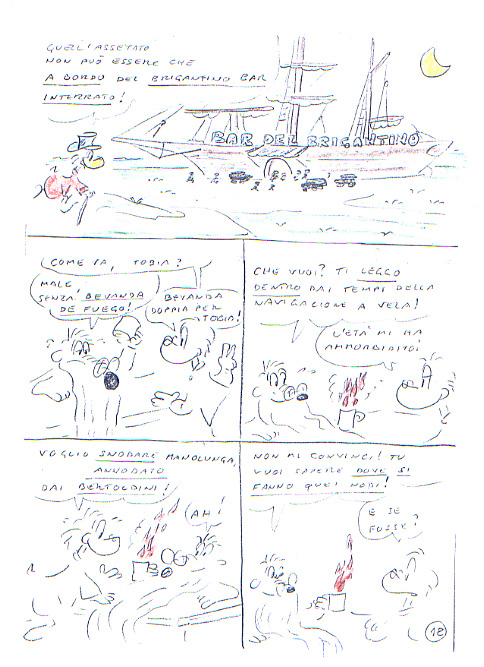 QUELL'ASSETATO
NON PUÒ ESSERE CHE
A BORDO DEL BRIGANTINO BAR
INTERRATO!
BAR DEL BRIGANTINO
COME VA, TOBIA?
MALE,
SENZA BEVANDA
DE FUEGO!
BEVANDA
DOPPIA PER
TOBIA!
CHE VUOI? TI LEGGO
DENTRO DAI TEMPI DELLA
NAVIGAZIONE A VELA!
L'ETÀ MI HA
AMMORBIDITO!
VOGLIO SNODARE MANOLUNGA,
ANNODATO
DAI BERTOLDINI!
AH!
NON MI CONVINCI! TU
VUOI SAPERE DOVE SI
FANNO QUEI NODI!
E SE
FOSSE?
12